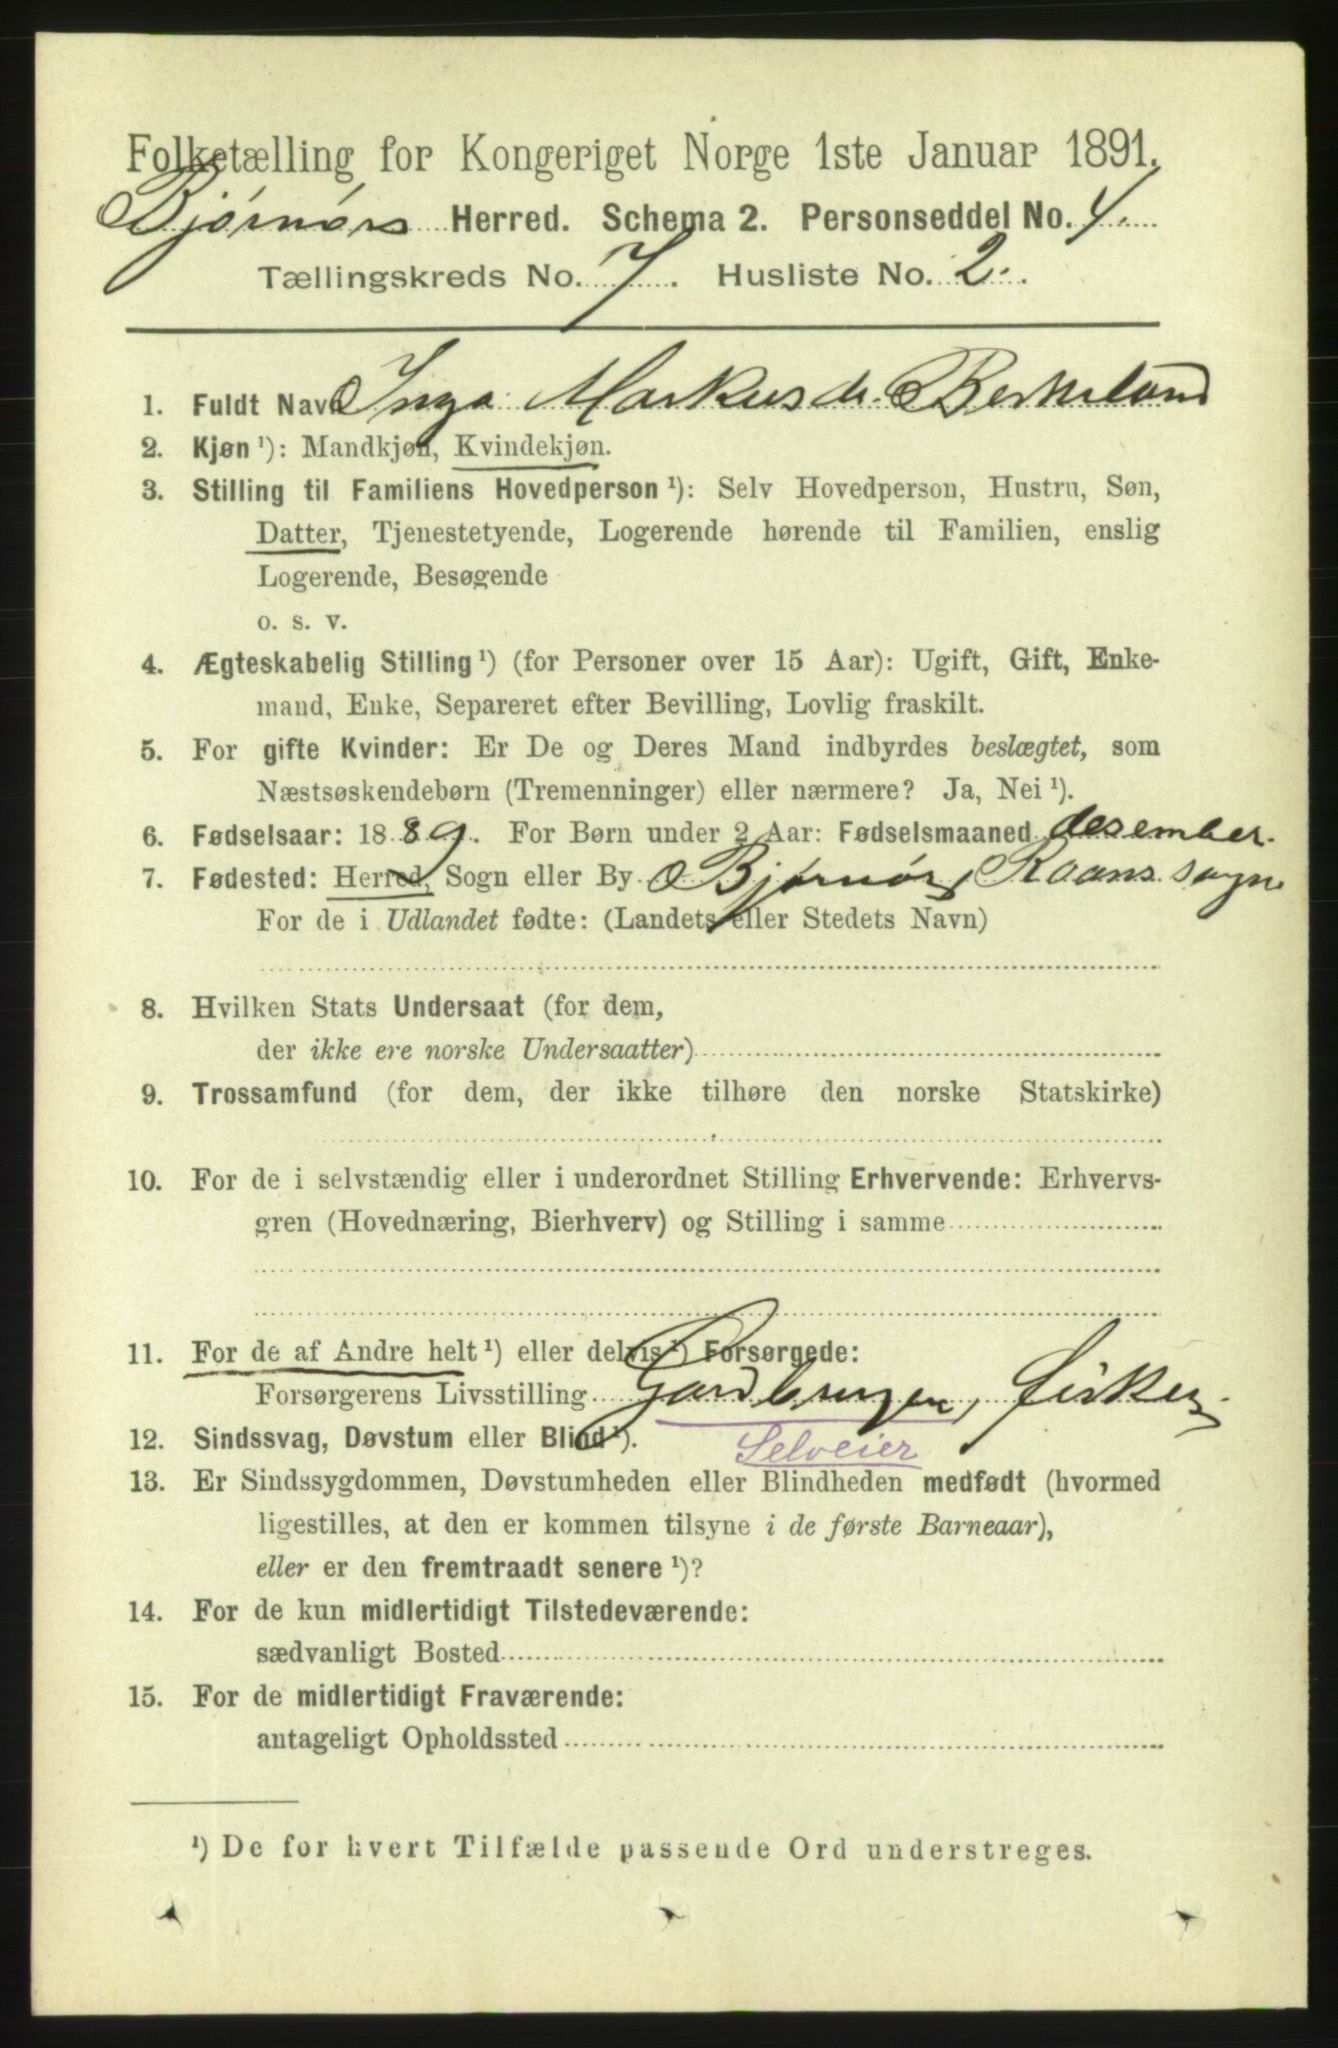 Folketælling for Kongeriget Norge 1ste Januar 1891.
Bjørnørs Herred. Schema 2. Personseddel No. 4.
Tællingskreds No. 7. Husliste No. 2.
1. Fuldt Navn Inga Markusdr. Berkeland
2. Kjøn ¹): Mandkjøn, Kvindekjøn.
3. Stilling til Familiens Hovedperson ¹): Selv Hovedperson, Hustru, Søn,
Datter, Tjenestetyende, Logerende hørende til Familien, enslig
Logerende, Besøgende
o. s. v.
4. Ægteskabelig Stilling ¹) (for Personer over 15 Aar): Ugift, Gift, Enke-
mand, Enke, Separeret efter Bevilling, Lovlig fraskilt.
5. For gifte Kvinder: Er De og Deres Mand indbyrdes beslægtet, som
Næstsøskendebørn (Tremenninger) eller nærmere? Ja, Nei ¹).
6. Fødselsaar: 1889. For Børn under 2 Aar: Fødselsmaaned desember.
7. Fødested: Herred, Sogn eller By Bjørnørs Roans sogn
For de i Udlandet fødte: (Landets eller Stedets Navn)
8. Hvilken Stats Undersaat (for dem,
der ikke ere norske Undersaatter)
9. Trossamfund (for dem, der ikke tilhøre den norske Statskirke)
10. For de i selvstændig eller i underordnet Stilling Erhvervende: Erhvervs-
gren (Hovednæring, Bierhverv) og Stilling i samme
11. For de af Andre helt ¹) eller delvis ¹) Forsørgede:
Forsørgerens Livsstilling Gardbruger, fisker
Selveier
12. Sindssvag, Døvstum eller Blind ¹).
13. Er Sindssygdommen, Døvstumheden eller Blindheden medfødt (hvormed
ligestilles, at den er kommen tilsyne i de første Barneaar),
eller er den fremtraadt senere ¹)?
14. For de kun midlertidigt Tilstedeværende:
sædvanligt Bosted
15. For de midlertidigt Fraværende:
antageligt Opholdssted
¹) De for hvert Tilfælde passende Ord understreges.